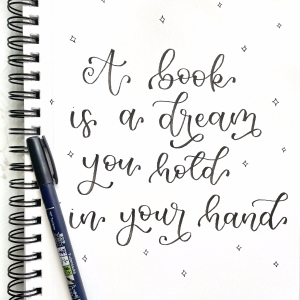 A book
is a dream
you hold
in your hand